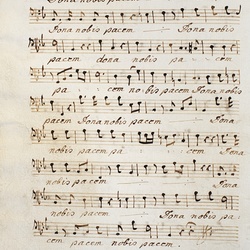 Dona nobis pacem
Dona nobis pacem Dona nobis
pacem dona nobis pa cem
pa cem no bis pacem Dona nobis
pacem Dona nobis pacem Dona
nobis pacem pa cem Dona
nobis pacem Dona nobis
nobis pacem Dona nobis pa
cem pacem dona nobis pacem